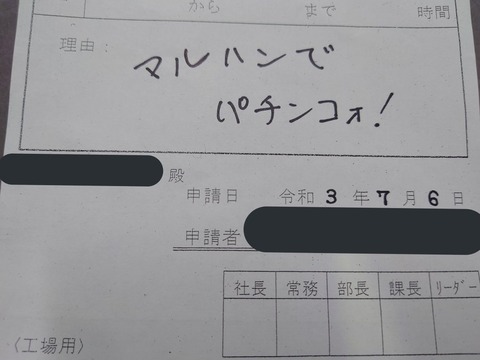 から　まで　時間
理由：
マルハンで
パチンコォ！
殿
申請日　令和 3 年 7 月 6 日
申請者
社長　常務　部長　課長　ﾘｰﾀﾞｰ
〈工場用〉